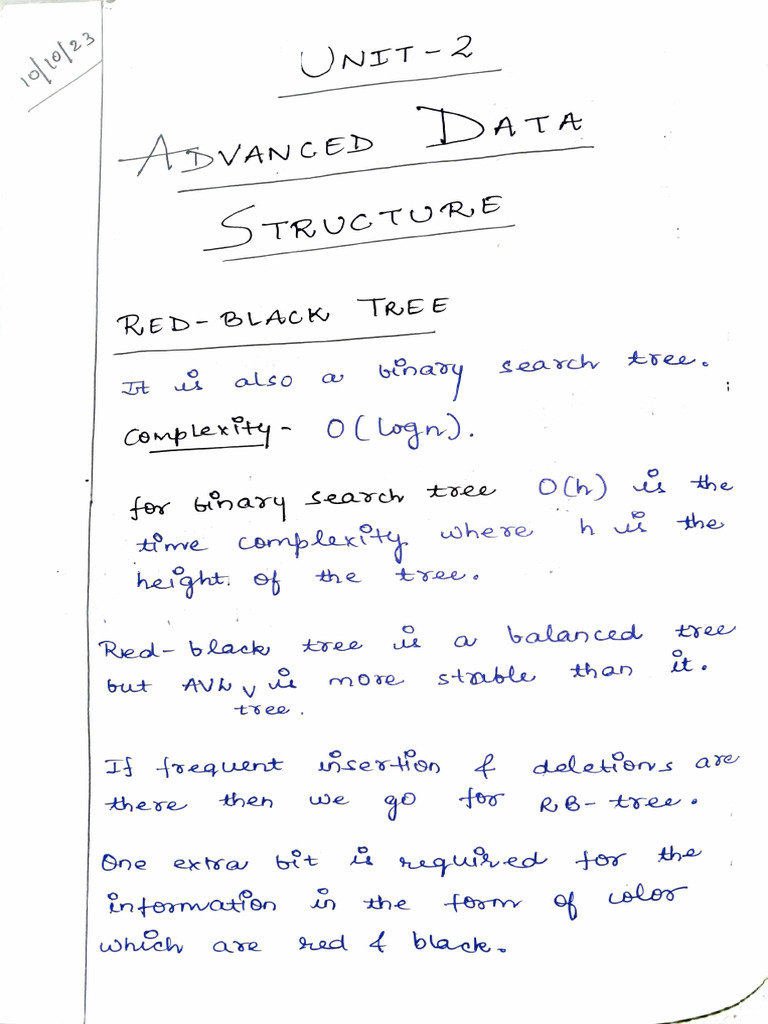 10/10/23
UNIT-2
ADVANCED DATA
STRUCTURE
RED-BLACK TREE
It is also a binary search tree.
Complexity - O(logn).
for binary search tree O(h) is the
time complexity where h is the
height of the tree.
Red-black tree is a balanced tree
but AVL tree is more stable than it.
If frequent insertion & deletions are
there then we go for RB-tree.
One extra bit is required for the
information in the form of color
which are red & black.